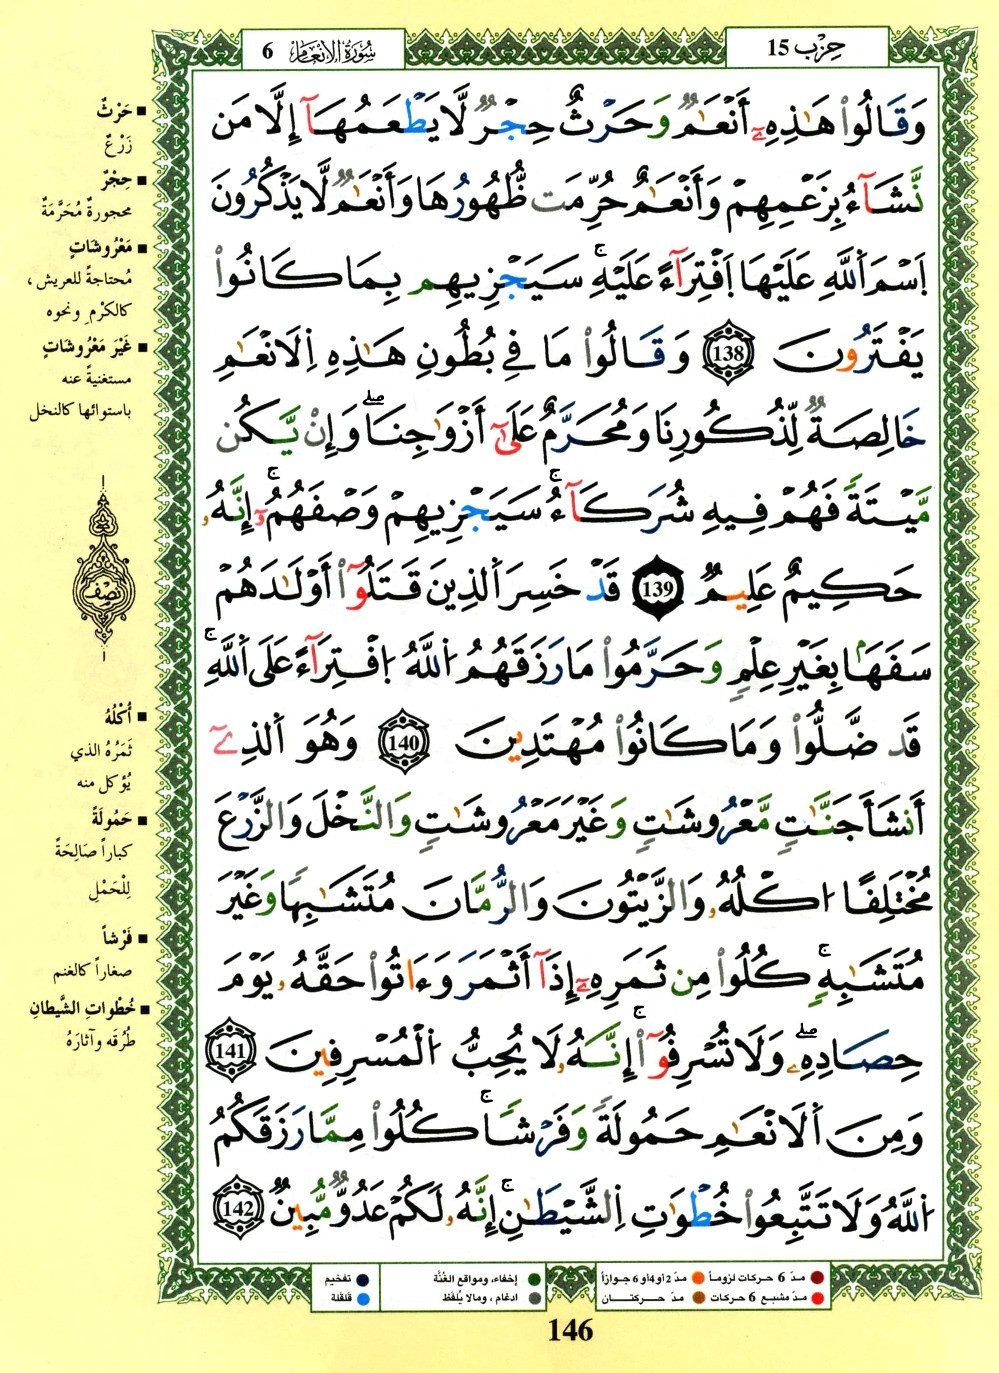 حِزْب 15
سُورَةُ الانْعَام 6
وَقَالُواْ هَٰذِهِۦٓ أَنْعَٰمٞ وَحَرْثٌ حِجْرٞ لَّا يَطْعَمُهَآ إِلَّا مَن
نَّشَآءُ بِزَعْمِهِمْ وَأَنْعَٰمٌ حُرِّمَت ظُّهُورُهَا وَأَنْعَٰمٞ لَّا يَذْكُرُونَ
اَسْمَ اَللَّهِ عَلَيْهَا اَفْتِرَآءً عَلَيْهِۚ سَيَجْزِيهِم بِمَا كَانُواْ
يَفْتَرُونَ 138 وَقَالُواْ مَا فِي بُطُونِ هَٰذِهِ اِلَانْعَٰمِ
خَالِصَةٞ لِّذُكُورِنَا وَمُحَرَّمٌ عَلَىٰٓ أَزْوَٰجِنَاۖ وَإِنْ يَّكُن
مَّيْتَةٗ فَهُمْ فِيهِ شُرَكَآءُۚ سَيَجْزِيهِمْ وَصْفَهُمُۥٓۚ إِنَّهُۥ
حَكِيمٌ عَلِيمٞ 139 قَدْ خَسِرَ اَلذِينَ قَتَلُوٓاْ أَوْلَٰدَهُمْ
سَفَهَاۢ بِغَيْرِ عِلْمٖ وَحَرَّمُواْ مَا رَزَقَهُمُ اُللَّهُ اُفْتِرَآءً عَلَى اَللَّهِۚ
قَد ضَّلُّواْ وَمَا كَانُواْ مُهْتَدِينَ 140 وَهُوَ اَلذِےٓ
أَنشَأَ جَنَّٰتٖ مَّعْرُوشَٰتٖ وَغَيْرَ مَعْرُوشَٰتٖ وَالنَّخْلَ وَالزَّرْعَ
مُخْتَلِفًا اُكْلُهُۥ وَالزَّيْتُونَ وَالرُّمَّانَ مُتَشَٰبِهٗا وَغَيْرَ
مُتَشَٰبِهٖۚ كُلُواْ مِن ثَمَرِهِۦٓ إِذَآ أَثْمَرَ وَءَاتُواْ حَقَّهُۥ يَوْمَ
حِصَادِهِۦۖ وَلَا تُسْرِفُوٓاْۚ إِنَّهُۥ لَا يُحِبُّ اُلْمُسْرِفِينَ 141
وَمِنَ اَلَانْعَٰمِ حَمُولَةٗ وَفَرْشٗاۚ كُلُواْ مِمَّا رَزَقَكُمُ
اُللَّهُ وَلَا تَتَّبِعُواْ خُطْوَٰتِ اِلشَّيْطَٰنِۚ إِنَّهُۥ لَكُمْ عَدُوّٞ مُّبِينٞ 142
■ حَرْثٌ
زَرْعٌ
■ حِجْرٌ
محجورةٌ مُحَرَّمَةٌ
■ مَعْرُوشَاتٍ
مُحتاجةً للعريش،
كالكَرْمِ ونحوه
■ غَيْرَ مَعْرُوشَاتٍ
مستغنيةً عنه
باستوائها كالنخل
نِصْف
■ أُكْلُهُ
ثَمَرُهُ الذي
يُؤكل منه
■ حَمُولَةً
كباراً صَالِحَةً
لِلْحَمْلِ
■ فَرْشاً
صغاراً كالغنم
■ خُطْواتِ الشَّيطانِ
طُرقه وآثارَهُ
مدّ 6 حركات لزوماً مدّ 2 أو 4 أو 6 جوازاً إخفاء، ومواقع الغُنَّة تفخيم
مدّ مشبع 6 حركات مدّ حـركتــان ادغام ، ومالا يُلفظ قلقلة
146